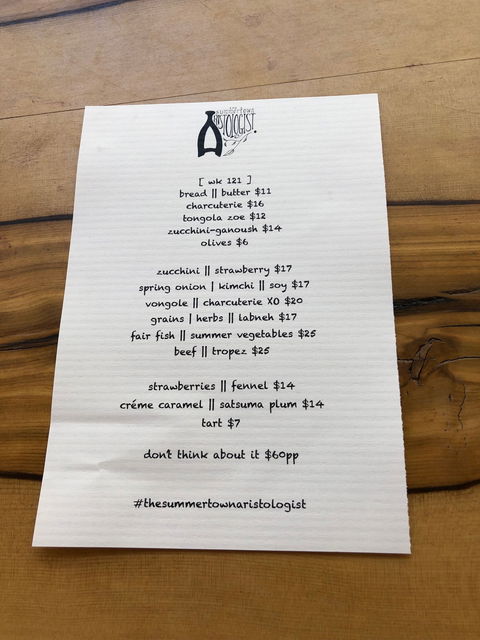 summertown
ARISTOLOGIST.
[ wk 121 ]
bread || butter $11
charcuterie $16
tongola zoe $12
zucchini-ganoush $14
olives $6
zucchini || strawberry $17
spring onion | kimchi || soy $17
vongole || charcuterie XO $20
grains | herbs || labneh $17
fair fish || summer vegetables $25
beef || tropez $25
strawberries || fennel $14
créme caramel || satsuma plum $14
tart $7
don't think about it $60pp
#thesummertownaristologist